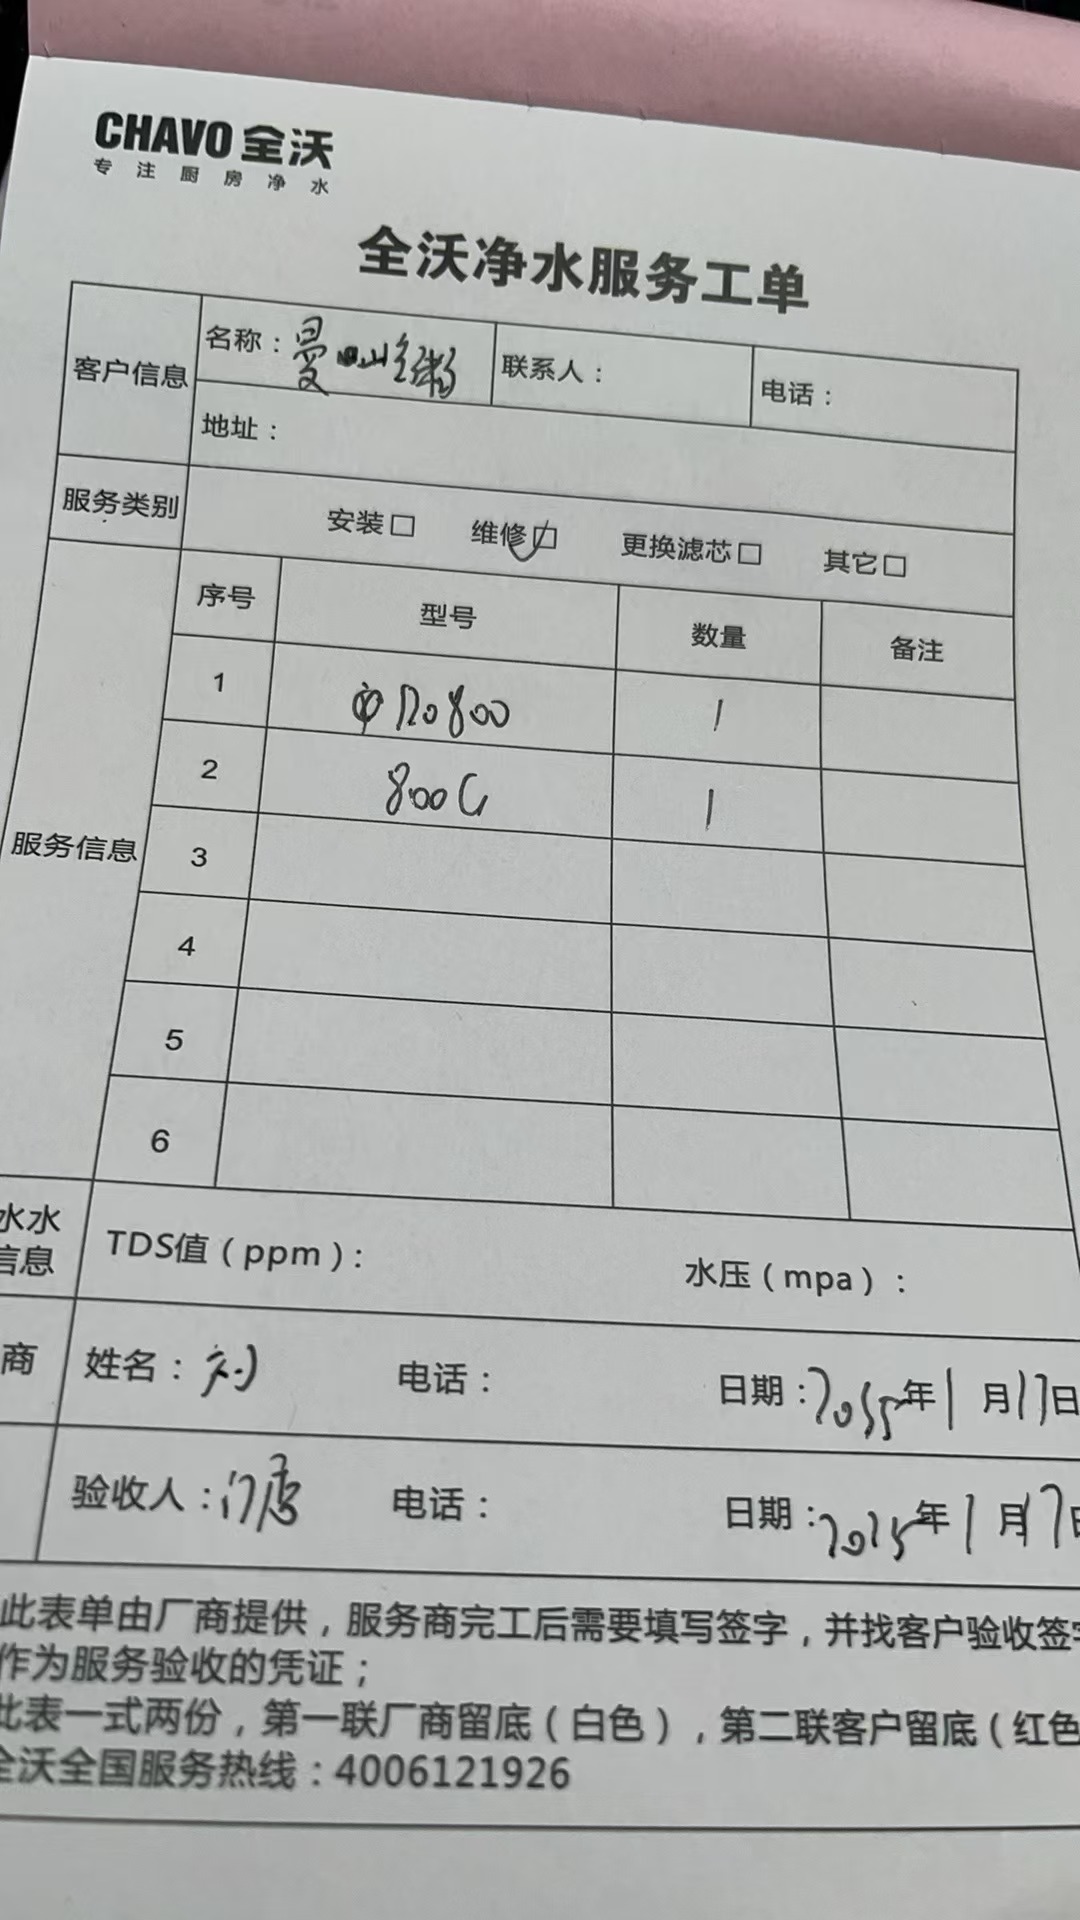 CHAVO 全沃
专注厨房净水
全沃净水服务工单
客户信息
名称：曼 山 粥
联系人：
电话：
地址：
服务类别
安装□ 维修□ 更换滤芯□ 其它□
服务信息
序号 型号 数量 备注
1 RO800 1
2 800G 1
3
4
5
6
水水
信息
TDS值（ppm）：
水压（mpa）：
商
姓名：刘 电话： 日期： 年1月17日
验收人：门店 电话： 日期：2025年1月17日
此表单由厂商提供，服务商完工后需要填写签字，并找客户验收签字
作为服务验收的凭证；
此表一式两份，第一联厂商留底（白色），第二联客户留底（红色
全沃全国服务热线：4006121926